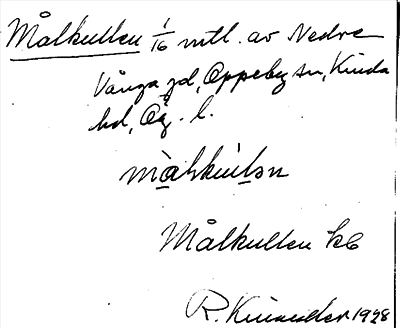 Målkullen 1/16 mtl. av Nedre
Vånga gd, Oppeby sn, Kinda
hd, Ög. l.
Målkullen
R. Kinander 1928